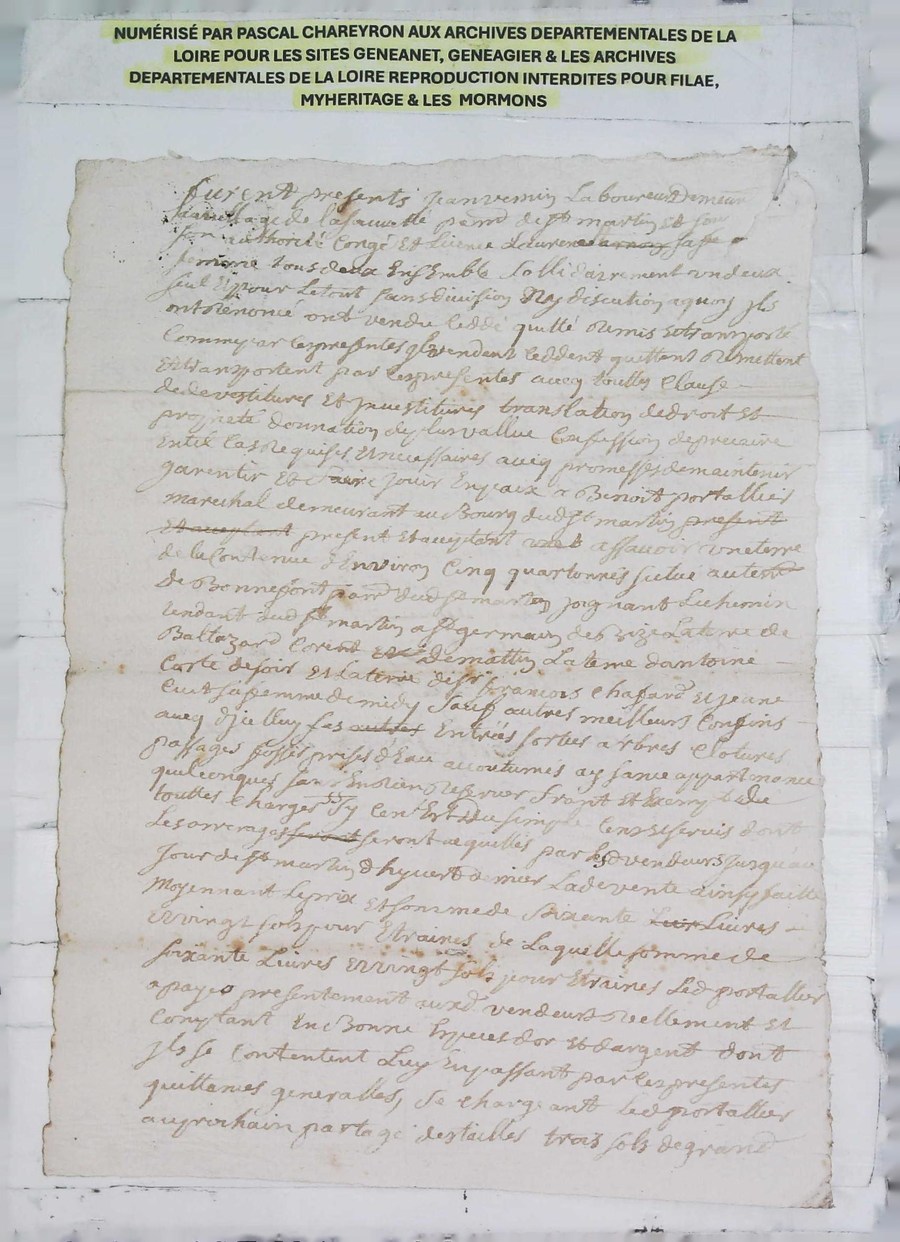 NUMÉRISÉ PAR PASCAL CHAREYRON AUX ARCHIVES DEPARTEMENTALES DE LA
LOIRE POUR LES SITES GENEANET, GENEAGIER & LES ARCHIVES
DEPARTEMENTALES DE LA LOIRE REPRODUCTION INTERDITES POUR FILAE,
MYHERITAGE & LES MORMONS
furent presents Jean Laboureur
de parr de st martin Et sous
son authorité Congé Et Licence sa
femme tous deux EnsEmble sollidairement un deux
seul Et pour Le tout sans division Ny discution a quoy Ils
ont Renoncé ont vendu Ceddé quitté Remis Et transporté
Comme par Ces presentes vendent Ceddent quittent Remettent
Et transportent par Ces presentes avecq touttes Clause
de devestitures Et Investitures translation de droit Et
proprieté donnation de plus vallue Confession de precaire
Et necessaires avecq promesses de maintenir
garentir Et faire Jouir En paix a Benoit portallier
marechal demeurant au Bourg dud st martin present
Et acceptant present Et acceptant assavoir une terre
de la Contenue d'Environ Cinq quartonnés scitue au
de Bonnefont parr dud st martin Joignant Le chemin
tendant dud st martin a st germain de Bize La terre de
Baltazard de mattin La terre d'antoine
Corte de soir Et La terre de françois Chasard Et Jeane
sa femme de midy sauf autres meilleurs Confins
avecq d'Icelluy ses autres Entrées sorties arbres Clotures
passages prises d'Eau accoutumés aysance appartenance
quelconques sans En Rien Reserver franc Et Exempt de
touttes Charges simple Cens Et servis dont
Les arrerages seront acquittés par Lesd vendeurs Jusqu'au
Jour de st martin d'hyvert dernier Lad vente ainsy faitte
Moyennant Le prix Et somme de soixante Livres
Et vingt sols pour Etraines de Laquelle somme de
soixante Livres Et vingt sols pour Etraines Led portallier
a payé presentement auxd vendeurs Reellement Et
Comptant En Bonne Especes d'or Et d'argent dont
Ils se Contentent Luy En passant par Ces presentes
quittances generalles, se chargeant led portallier
au prochain partage des tailles trois sols de grand